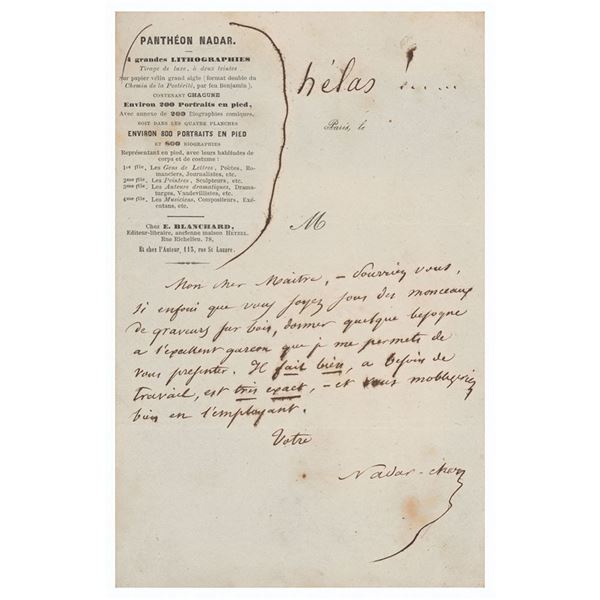 PANTHÉON NADAR.
4 grandes LITHOGRAPHIES
Tirage de luxe, à deux teintes
sur papier vélin grand aigle (format double du
Chemin de la Postérité, par feu Benjamin),
CONTENANT CHACUNE
Environ 200 Portraits en pied,
Avec annexe de 200 Biographies comiques,
SOIT DANS LES QUATRE PLANCHES
ENVIRON 800 PORTRAITS EN PIED
ET 800 BIOGRAPHIES
Représentant en pied, avec leurs habitudes de
corps et de costume :
1re file, Les Gens de Lettres, Poètes, Ro-
manciers, Journalistes, etc.
2me file, Les Peintres, Sculpteurs, etc.
3me file, Les Auteurs dramatiques, Drama-
turges, Vaudevillistes, etc.
4me file, Les Musiciens, Compositeurs, Exé-
cutans, etc.
Chez E. BLANCHARD,
Editeur-libraire, ancienne maison HETZEL
Rue Richelieu, 78,
Et chez l'Auteur, 113, rue St Lazare.
hélas !.....
Paris, le
M
Mon cher Maître, – Pourriez vous,
si enfoui que vous soyez sous des monceaux
de graveurs sur bois, donner quelque besogne
a l'excellent garçon que je me permets de
vous présenter. Il fait bien, a besoin de
travail, est très exact, – et vous m'obligeriez
bien en l'employant.
Votre
Nadar